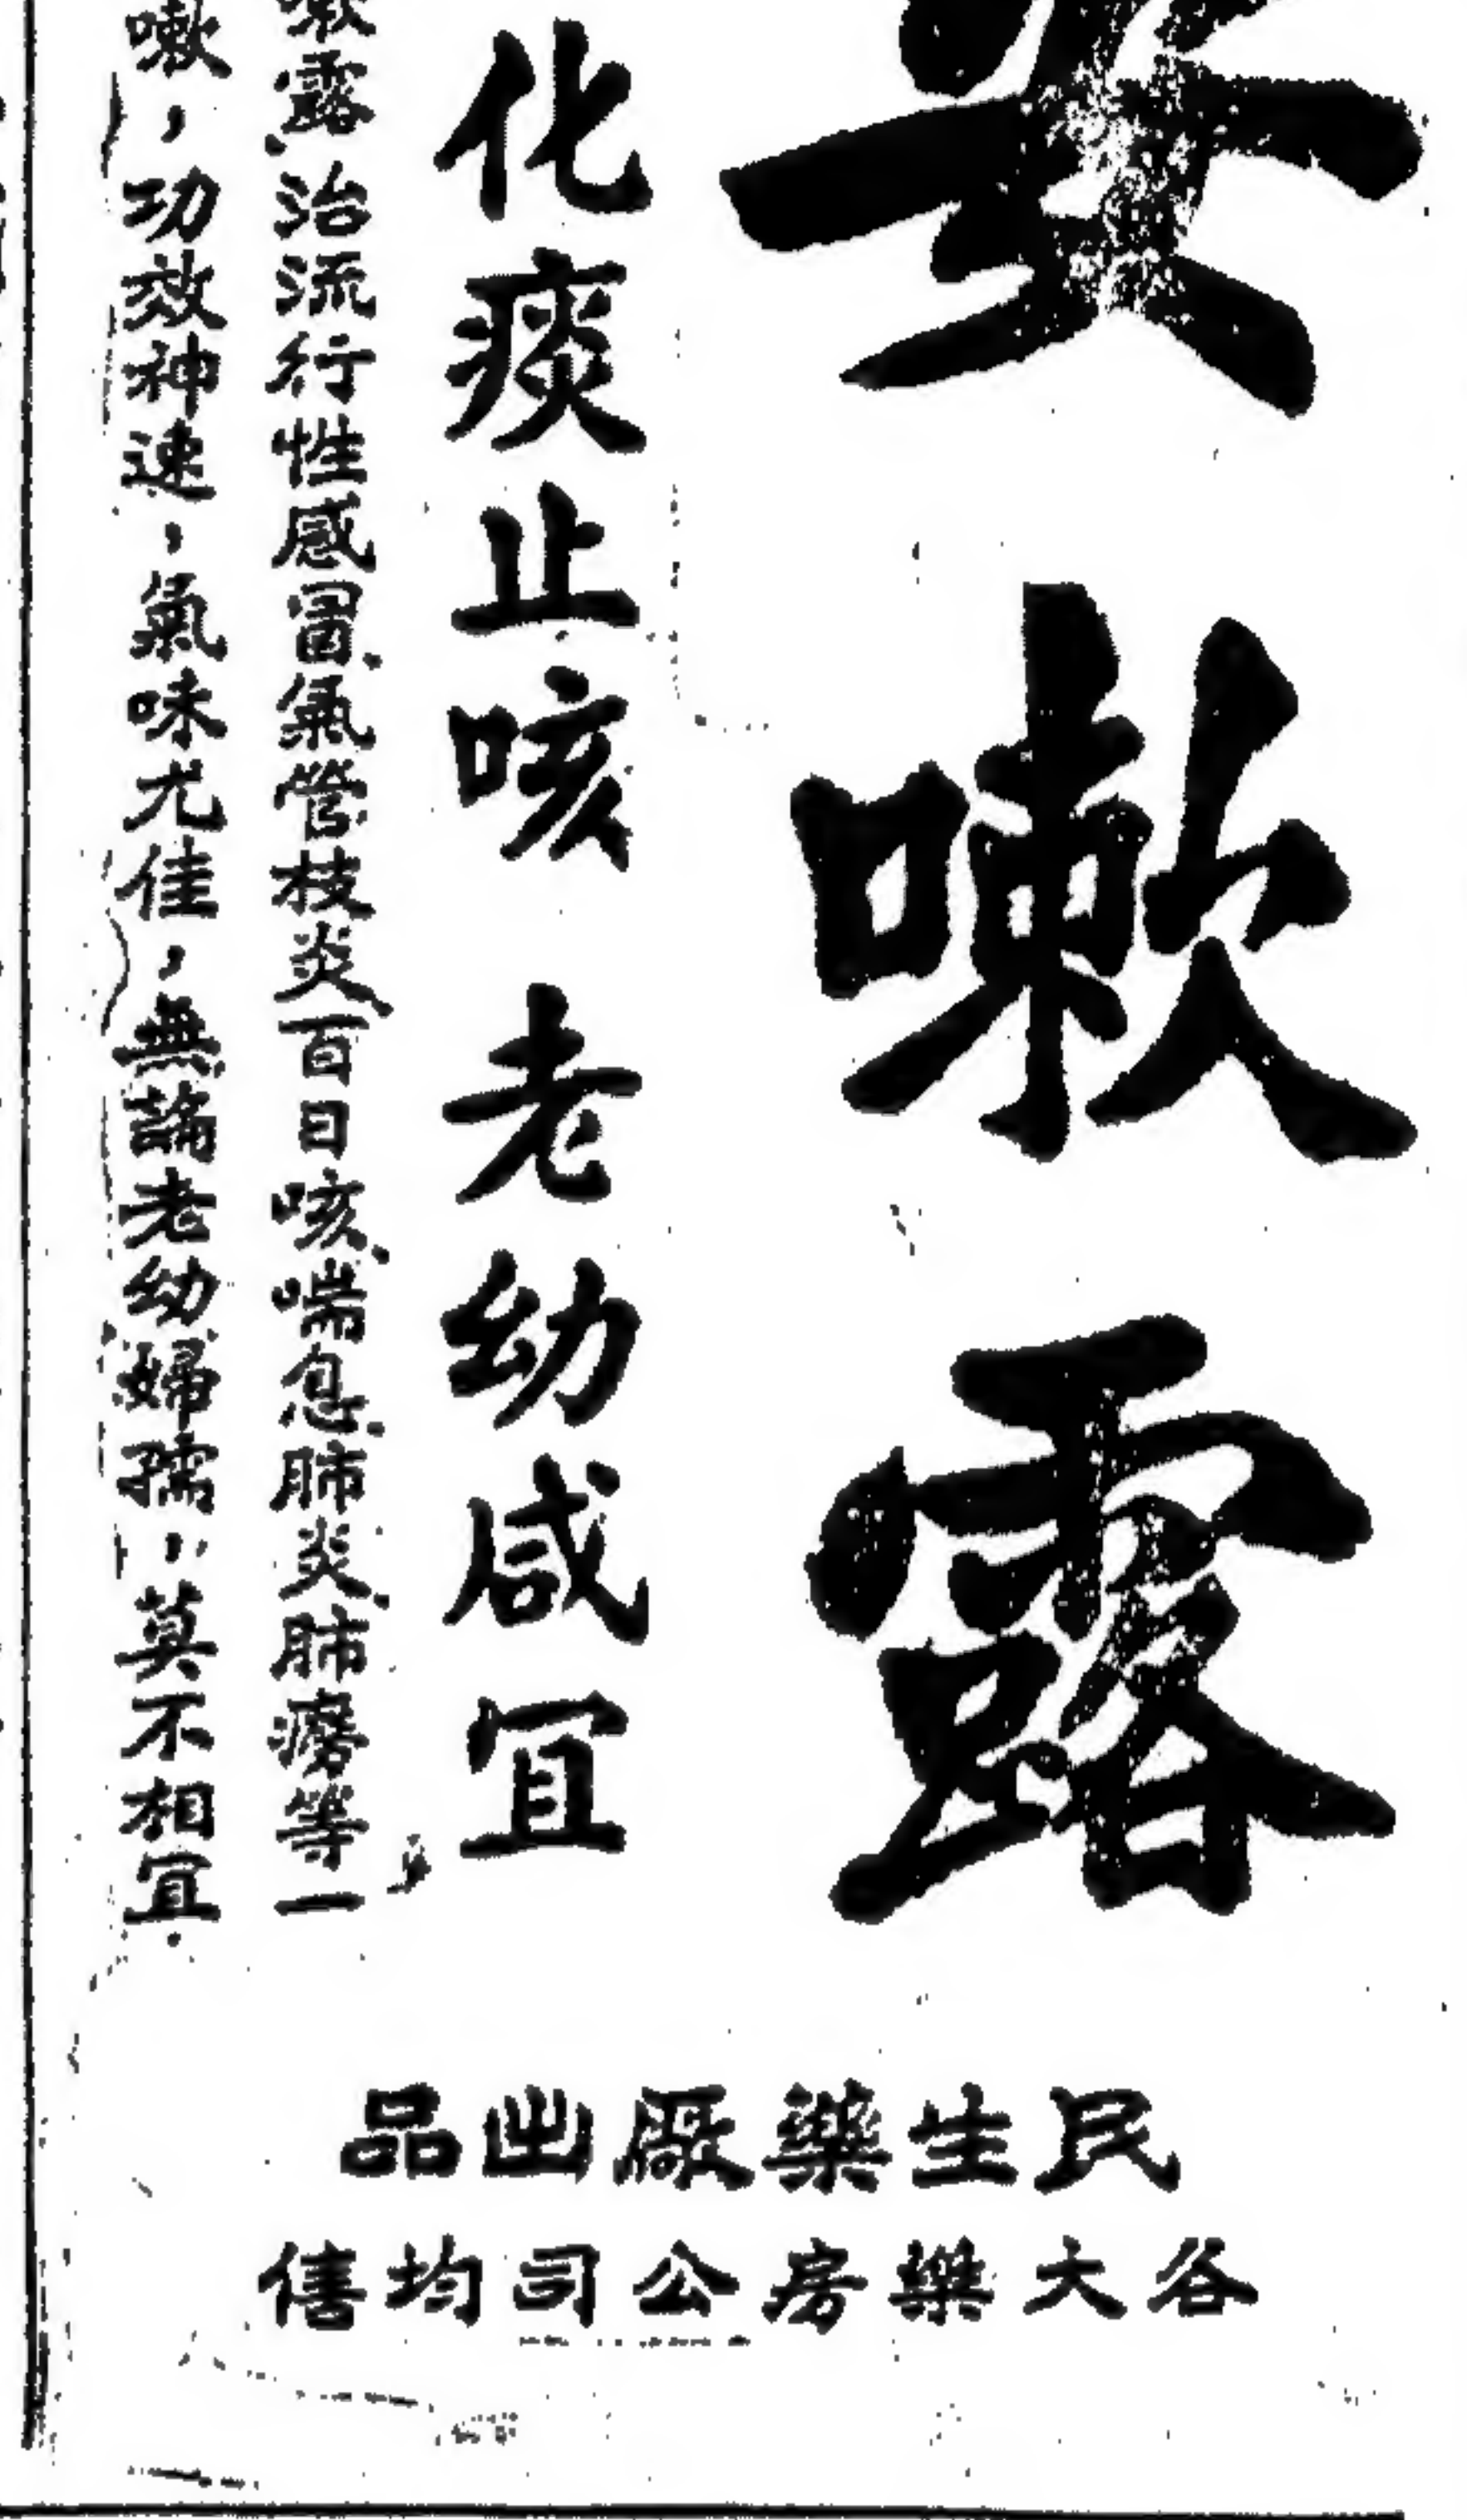 安嗽露
化痰止咳 老幼咸宜
嗽露治流行性感冒、氣管枝炎、百日咳、喘息、肺炎、肺癆等一
嗽，功效神速，氣味尤佳，無論老幼婦孺，莫不相宜．
民生藥厰出品
各大藥房公司均售